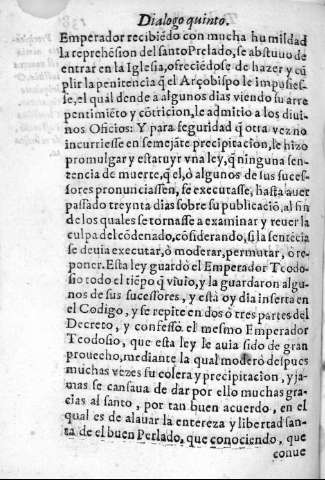 Dialogo quinto.
Emperador recibiẽdo con mucha humildad
la reprehẽsion del santo Prelado, se abstuuo de
entrar en la Iglesia, ofreciẽdose de hazer y cũ
plir la penitencia q̃ el Arçobispo le impusies-
se, el qual dende a algunos dias viendo su arre
pentimiẽto y cõtricion, le admitio a los diui-
nos Oficios: Y para seguridad q̃ otra vez no
incurriesse en semejãte precipitaciõ, le hizo
promulgar y estatuyr vna ley, q̃ ninguna sen-
tencia de muerte, q̃ el, ò algunos de sus suces-
sores pronunciassen, se executasse, hasta auer
passado treynta dias sobre su publicaciõ, al fin
de los quales se tornasse a examinar y reuer la
culpa del cõdenado, cõsiderando, si la sentẽcia
se deuia executar, ò moderar, permutar, o re-
poner. Esta ley guardó el Emperador Teodo-
sio todo el tiẽpo q̃ viuio, y la guardaron algu-
nos de sus sucessores, y està oy dia inserta en
el Codigo, y se repite en dos ò tres partes del
Decreto, y confessò el mesmo Emperador
Teodosio, que esta ley le auia sido de gran
prouecho, mediante la qual moderò despues
muchas vezes su colera y precipitacion, y ja-
mas se cansaua de dar por ello muchas gra-
cias al santo, por tan buen acuerdo, en el
qual es de alauar la entereza y libertad san-
ta de el buen Perlado, que conociendo, que
conue